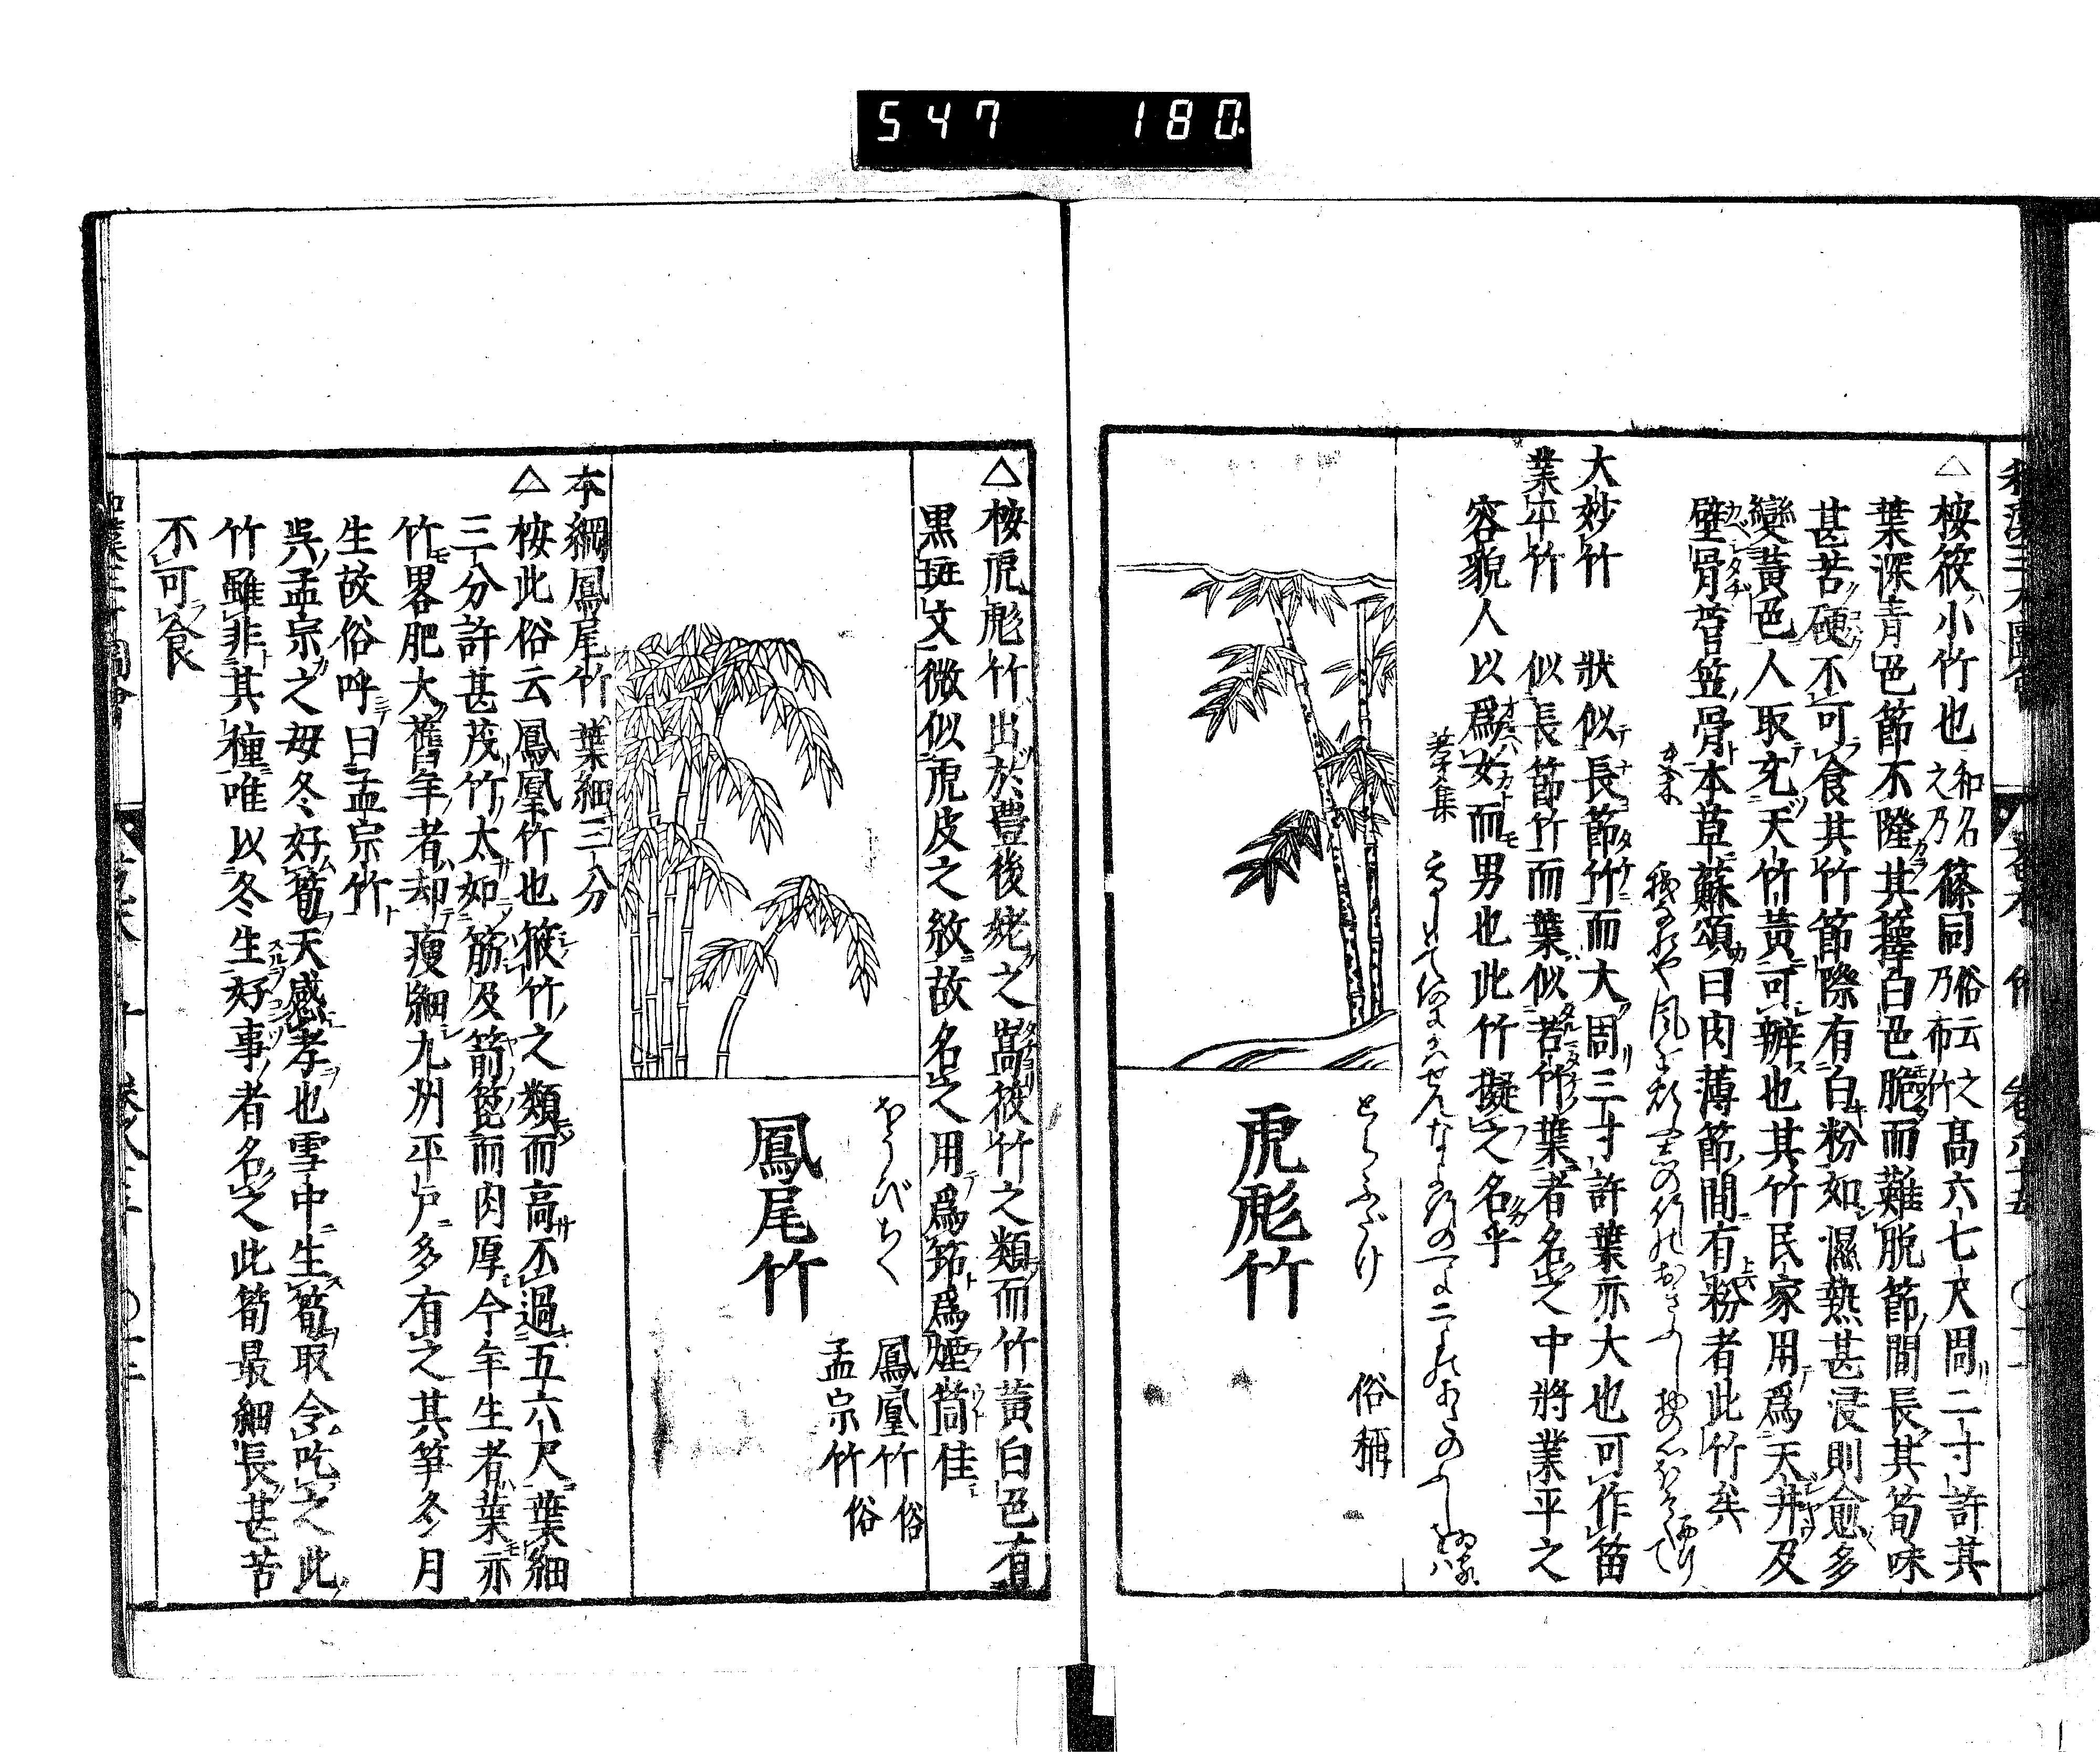 547 180
△按筱小竹也和名之乃篠同俗云之乃布竹高六七尺周二寸許其
葉深青色節不隆其籜白色脆而難脱節間長其筍味
甚苦硬不可食其竹節際有白粉如濕熱甚浸則愈多
變黃色人取充天竹黃可辨也其竹民家用爲天井及
壁骨菅笠骨本草蘇頌曰肉薄節間有粉者此竹矣
大妙竹 狀似長節竹而大周三寸許葉亦大也可作笛
業平竹 似長節竹而葉似苦竹葉者名之中將業平之
容貌人以爲女而男也此竹擬之名乎
虎彪竹
とらふだけ
俗稱
△按虎彪竹出於豊後姥之嵩筱竹之類而竹黃白色有
黒斑文微似虎皮之紋故名之用爲笻爲煙筒佳
鳳尾竹
ほうびちく
鳳凰竹俗
孟宗竹俗
本綱鳳尾竹葉細三分
△按此俗云鳳凰竹也筱竹之類而高不過五六尺葉細
三分許甚茂竹太如筯及箭箆而肉厚今年生者葉亦
竹畧肥大舊年者却瘦細九州平戸多有之其笋冬月
生故俗呼曰孟宗竹
呉孟宗之母冬好筍天感孝也雪中生筍取令吃之此
竹雖非其種唯以冬生好事者名之此筍最細長甚苦
不可食